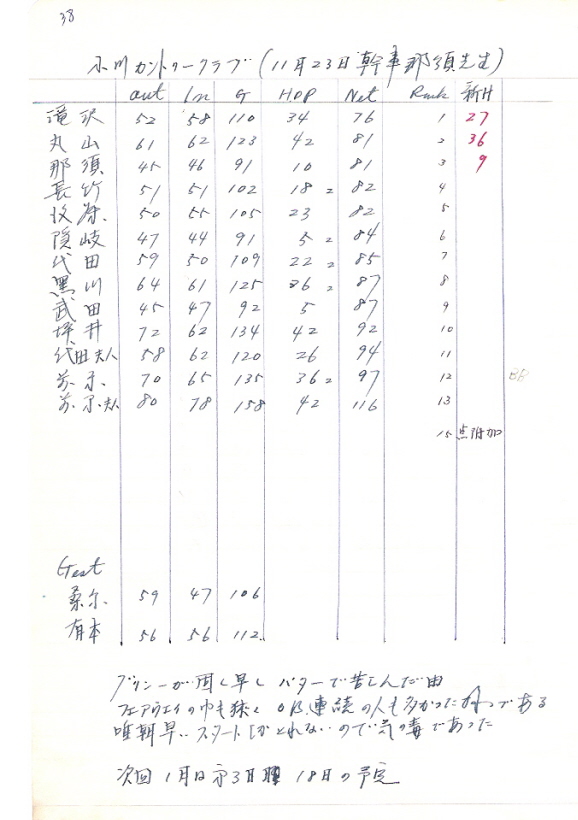 38
小川カントリークラブ (11月23日 幹事那須先生)
out In G HDP Net Rank 新H
滝沢 52 58 110 34 76 1 27
丸山 61 62 123 42 81 2 36
那須 45 46 91 10 81 3 9
長竹 51 51 102 18 2 82 4
牧原 50 55 105 23 82 5
隠岐 47 44 91 5 2 84 6
代田 59 50 109 22 2 85 7
黒川 64 61 125 36 2 87 8
武田 45 47 92 5 87 9
坪井 72 62 134 42 92 10
代田夫人 58 62 120 26 94 11
70 65 135 36 2 97 12 BB
夫人 80 78 158 42 116 13
15 点附加
Gest
桑原 59 47 106
有本 56 56 112
グリーンが固く早く パターで苦しんだ由
フェアウェイの巾も狭く OB連続の人も多かった である
唯朝早いスタートしかとれないので気の毒であった
次回 1月は第3日曜 18日の予定